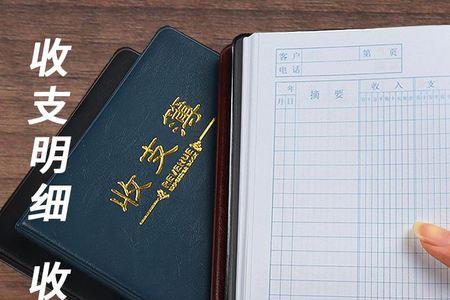 收支明细
收
收支簿
REVENUE
客户
第 页
电话
年
月 日
摘要
收入
支